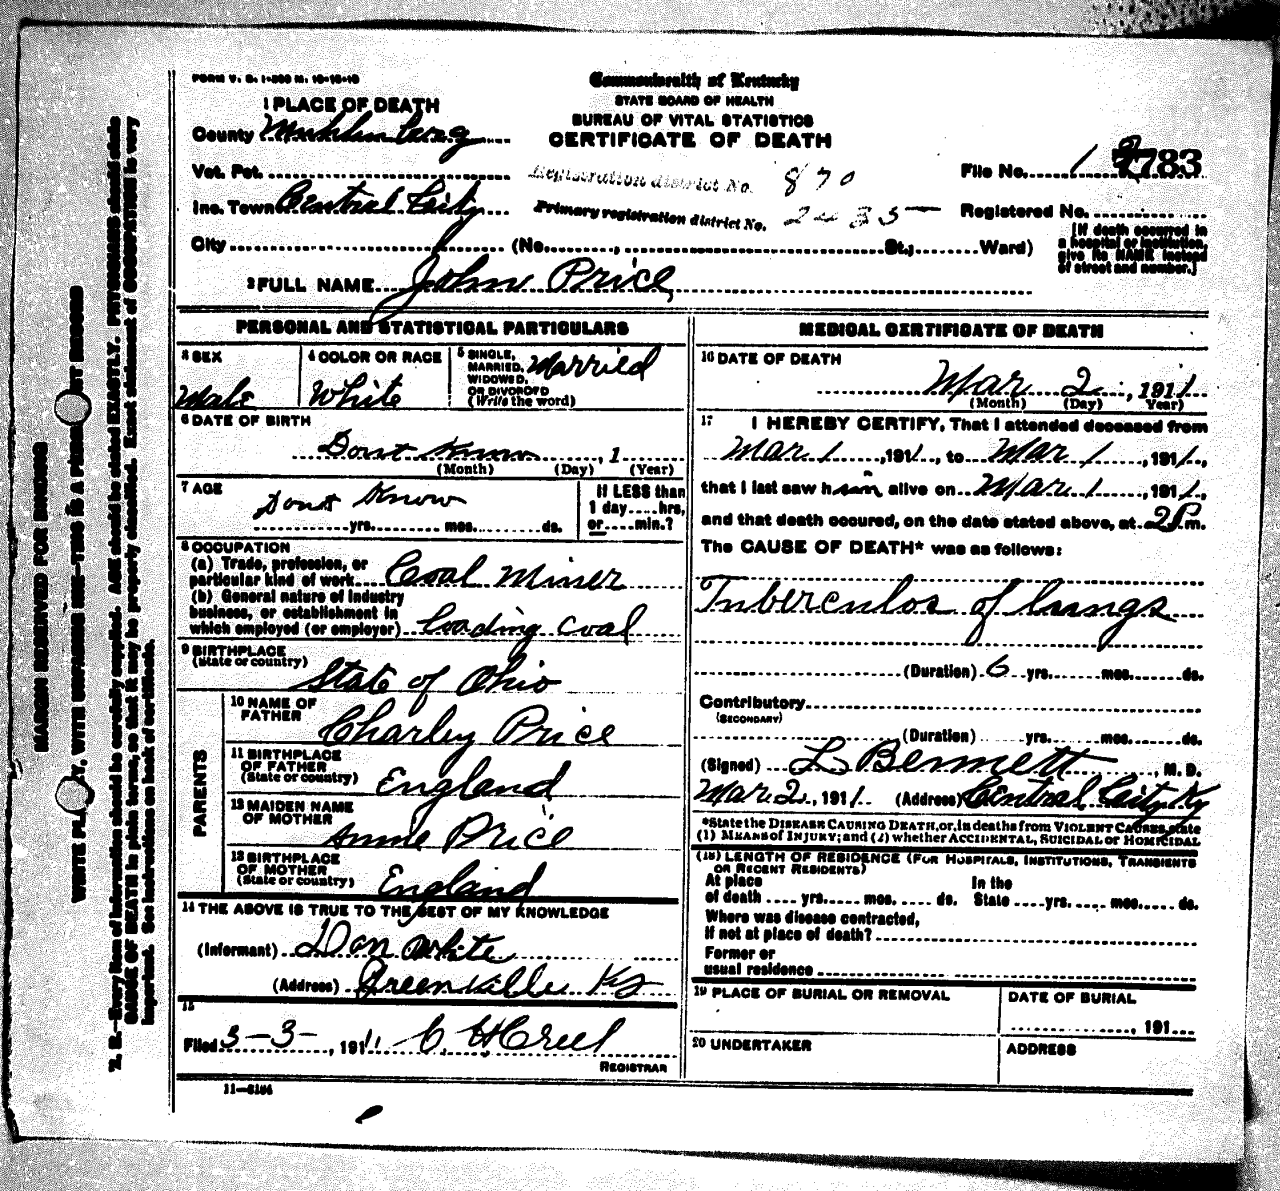 FORM V. S. 1-300 M. 10-10-10
Commonwealth of Kentucky
STATE BOARD OF HEALTH
BUREAU OF VITAL STATISTICS
CERTIFICATE OF DEATH
1 PLACE OF DEATH
County Muhlenberg
Vot. Pct.
Inc. Town Central City
City (No. , St., Ward)
Registration district No. 870
Primary registration district No. 2435
File No. 783
Registered No.
[If death occurred in
a hospital or institution,
give its NAME instead
of street and number.]
2 FULL NAME John Price
PERSONAL AND STATISTICAL PARTICULARS
3 SEX
Male
4 COLOR OR RACE
White
5 SINGLE,
MARRIED,
WIDOWED,
OR DIVORCED
(Write the word)
Married
6 DATE OF BIRTH
Dont Know , 1
(Month) (Day) (Year)
7 AGE
Dont Know
yrs. mos. ds.
If LESS than
1 day hrs,
or min.?
8 OCCUPATION
(a) Trade, profession, or
particular kind of work Coal Miner
(b) General nature of industry
business, or establishment in
which employed (or employer) Loading coal
9 BIRTHPLACE
(State or country)
State of Ohio
PARENTS
10 NAME OF
FATHER
Charley Price
11 BIRTHPLACE
OF FATHER
(State or country)
England
12 MAIDEN NAME
OF MOTHER
Annie Price
13 BIRTHPLACE
OF MOTHER
(State or country)
England
14 THE ABOVE IS TRUE TO THE BEST OF MY KNOWLEDGE
(Informant) Dan White
(Address) Greenville Ky
15
Filed 3-3-, 1911 C. H Creel
REGISTRAR
11-3184
MEDICAL CERTIFICATE OF DEATH
16 DATE OF DEATH
Mar 2, 1911
(Month) (Day) Year)
17 I HEREBY CERTIFY, That I attended deceased from
Mar 1, 1911, to Mar 1, 1911,
that I last saw him alive on Mar 1, 1911,
and that death occured, on the date stated above, at 2P m.
The CAUSE OF DEATH* was as follows:
Tuberculos of lungs
(Duration) 6 yrs. mos. ds.
Contributory
(SECONDARY)
(Duration) yrs. mos. ds.
(Signed) L Bennett, M. D.
Mar 2, 1911. (Address) Central City Ky
*State the DISEASE CAUSING DEATH, or, in deaths from VIOLENT CAUSES, state
(1) MEANS of INJURY; and (2) whether ACCIDENTAL, SUICIDAL or HOMICIDAL
(18) LENGTH OF RESIDENCE (FOR HOSPITALS, INSTITUTIONS, TRANSIENTS
OR RECENT RESIDENTS)
At place
of death yrs. mos. ds.
In the
State yrs. mos. ds.
Where was disease contracted,
If not at place of death?
Former or
usual residence
19 PLACE OF BURIAL OR REMOVAL
DATE OF BURIAL
, 191
20 UNDERTAKER
ADDRESS
MARGIN RESERVED FOR BINDING
WRITE PLAINLY, WITH UNFADING INK—THIS IS A PERMANENT RECORD
N. B.—Every item of information should be carefully supplied. AGE should be stated EXACTLY. PHYSICIANS should state
CAUSE OF DEATH in plain terms, so that it may be properly classified. Exact statement of OCCUPATION is very
important. See instructions on back of certificate.